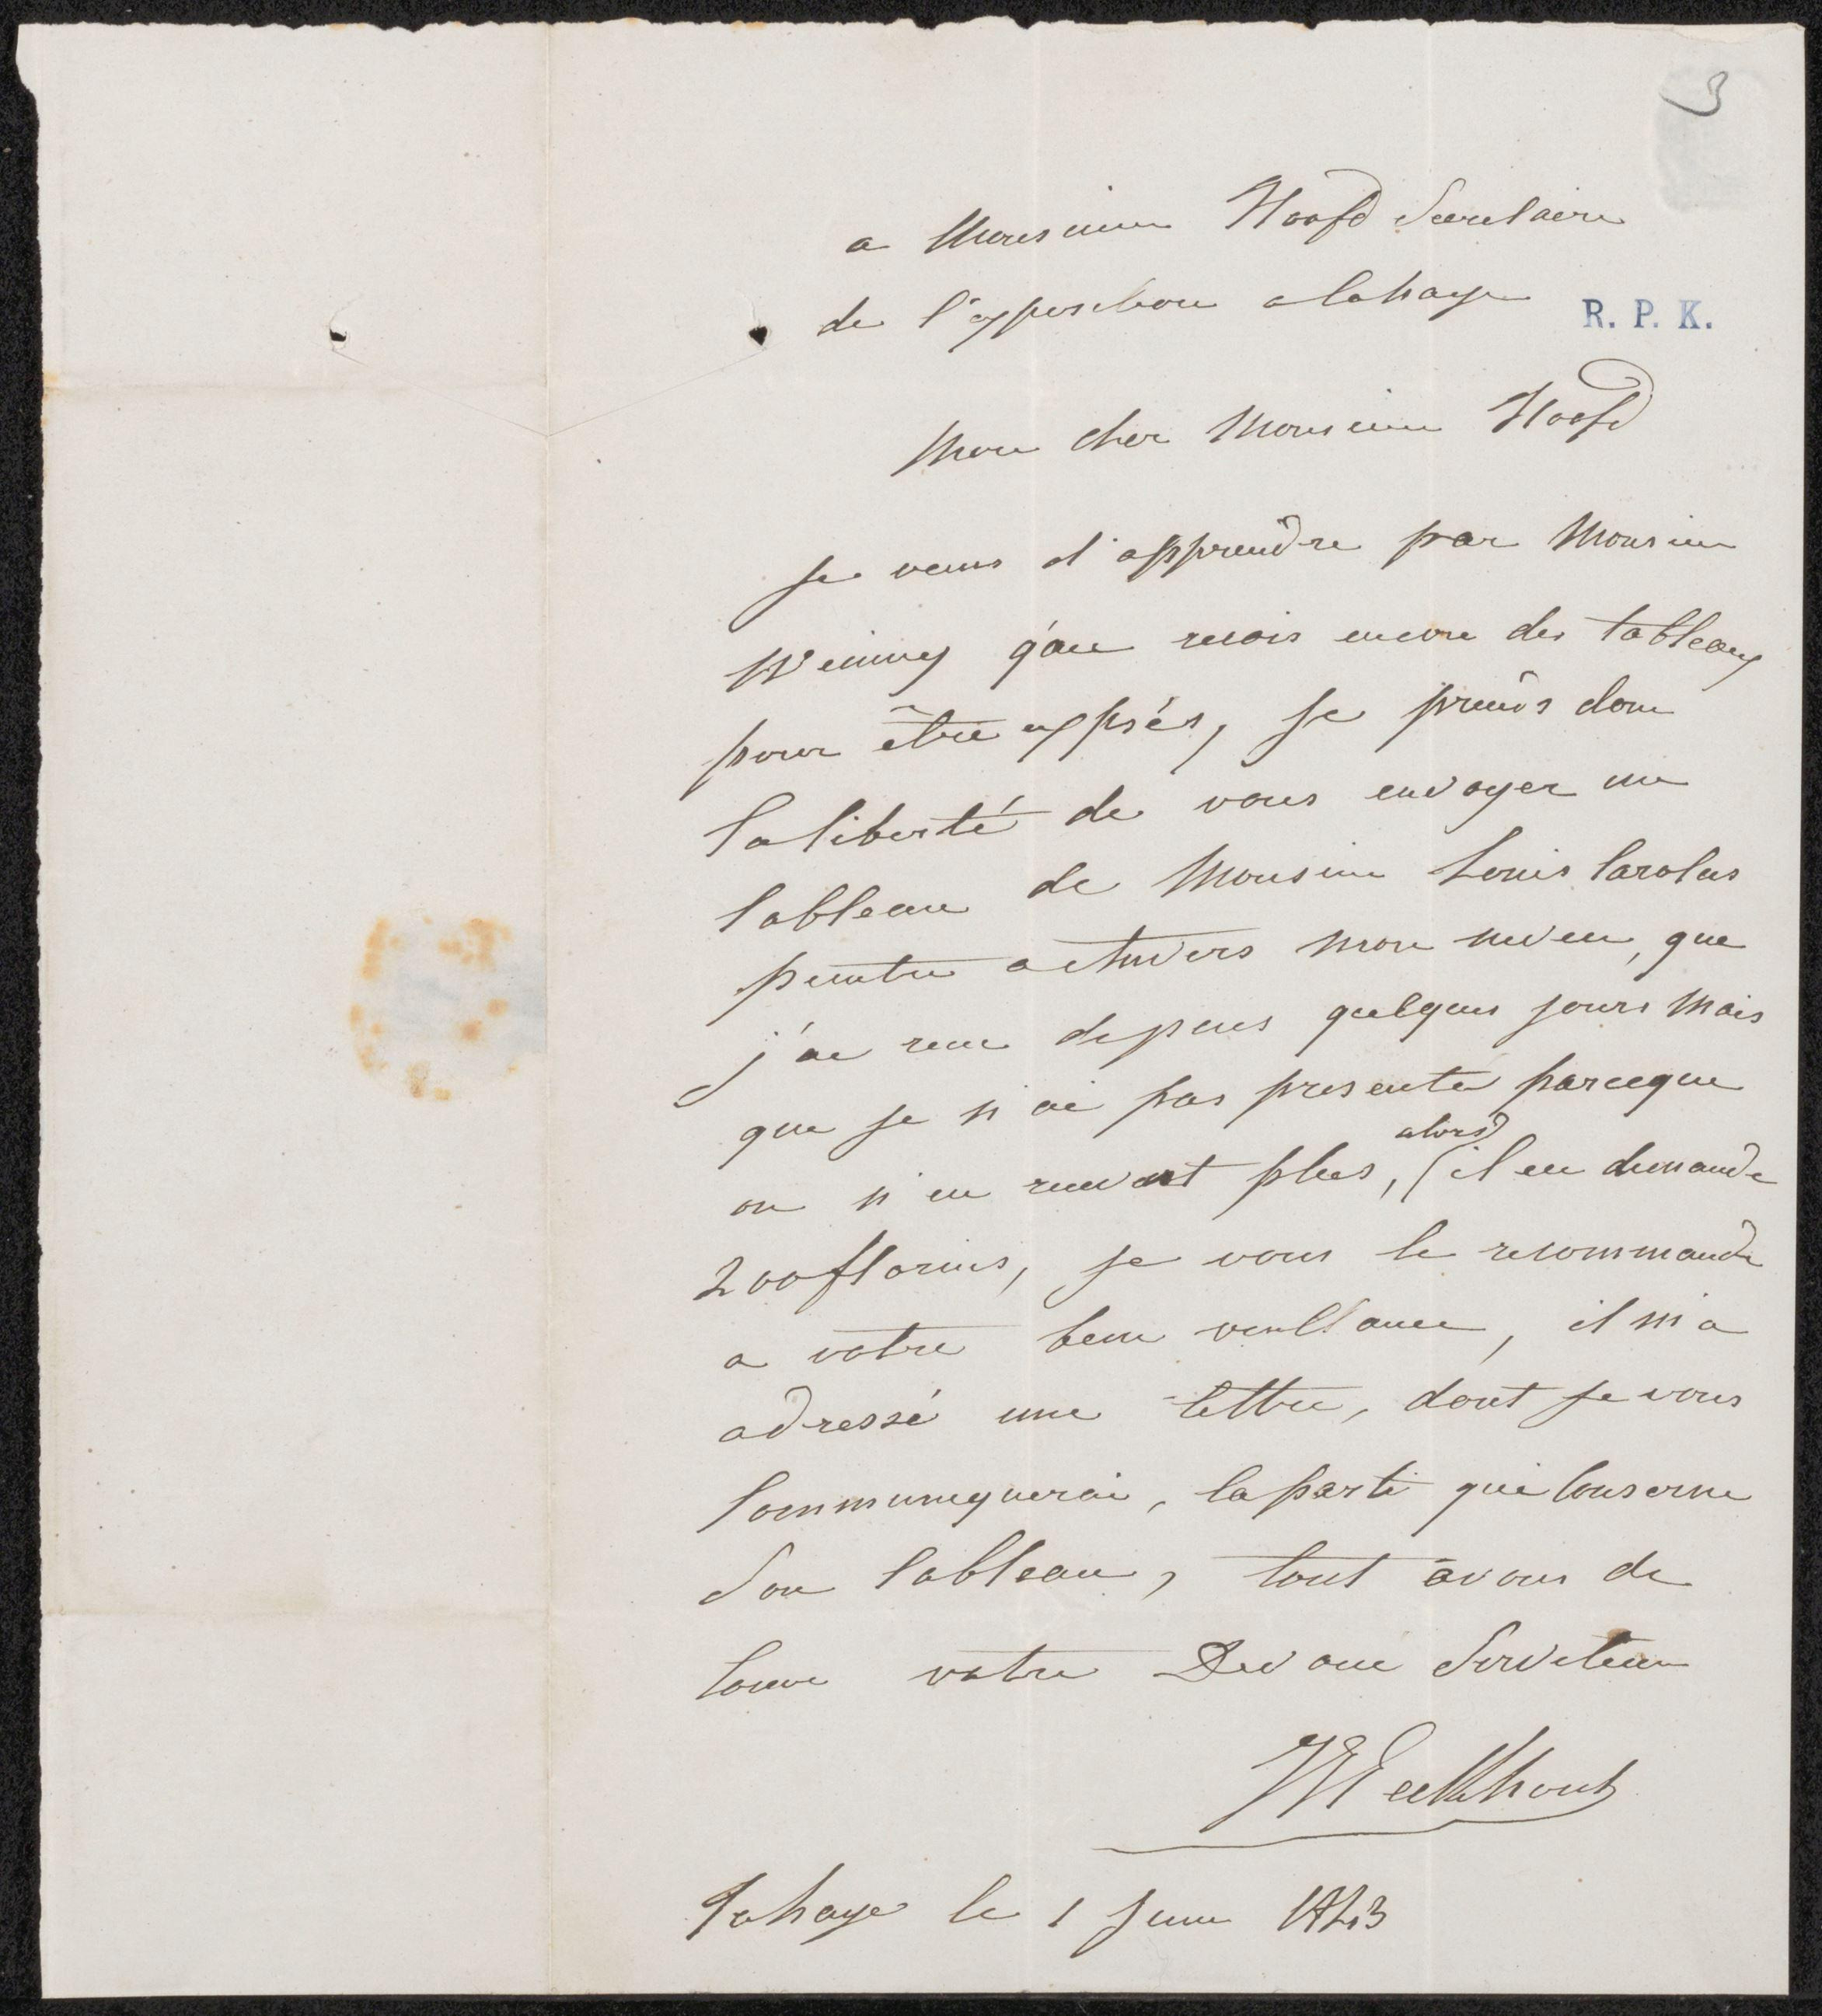 3
a Monsieur Hoofd Secretaire
de l'expposition a la haye
R. P. K.
Mon cher Monsieur Hoofd
Je viens d'apprendre par Monsieur
q'on recois encore des tableaux
pour être expsés, je prends donc
la liberté de vous envoyer un
tableau de Monsieur Louis Carolus
peintre a Anvers mon neveu, que
j'ai recu depuis quelques jours mais
que je n'ai pas presenté parceque
alors
on n'en recevoit plus, (il en demande
200 florins, je vous le recommande
a votre bien veillance, il m'a
adressé une lettre, dont je vous
Communiquerai, la parti qui Conserne
Son tableau, tout à vous de
Coeur votre Devoué Serviteur
Eeckhout
La haye le 1 Juin 1843